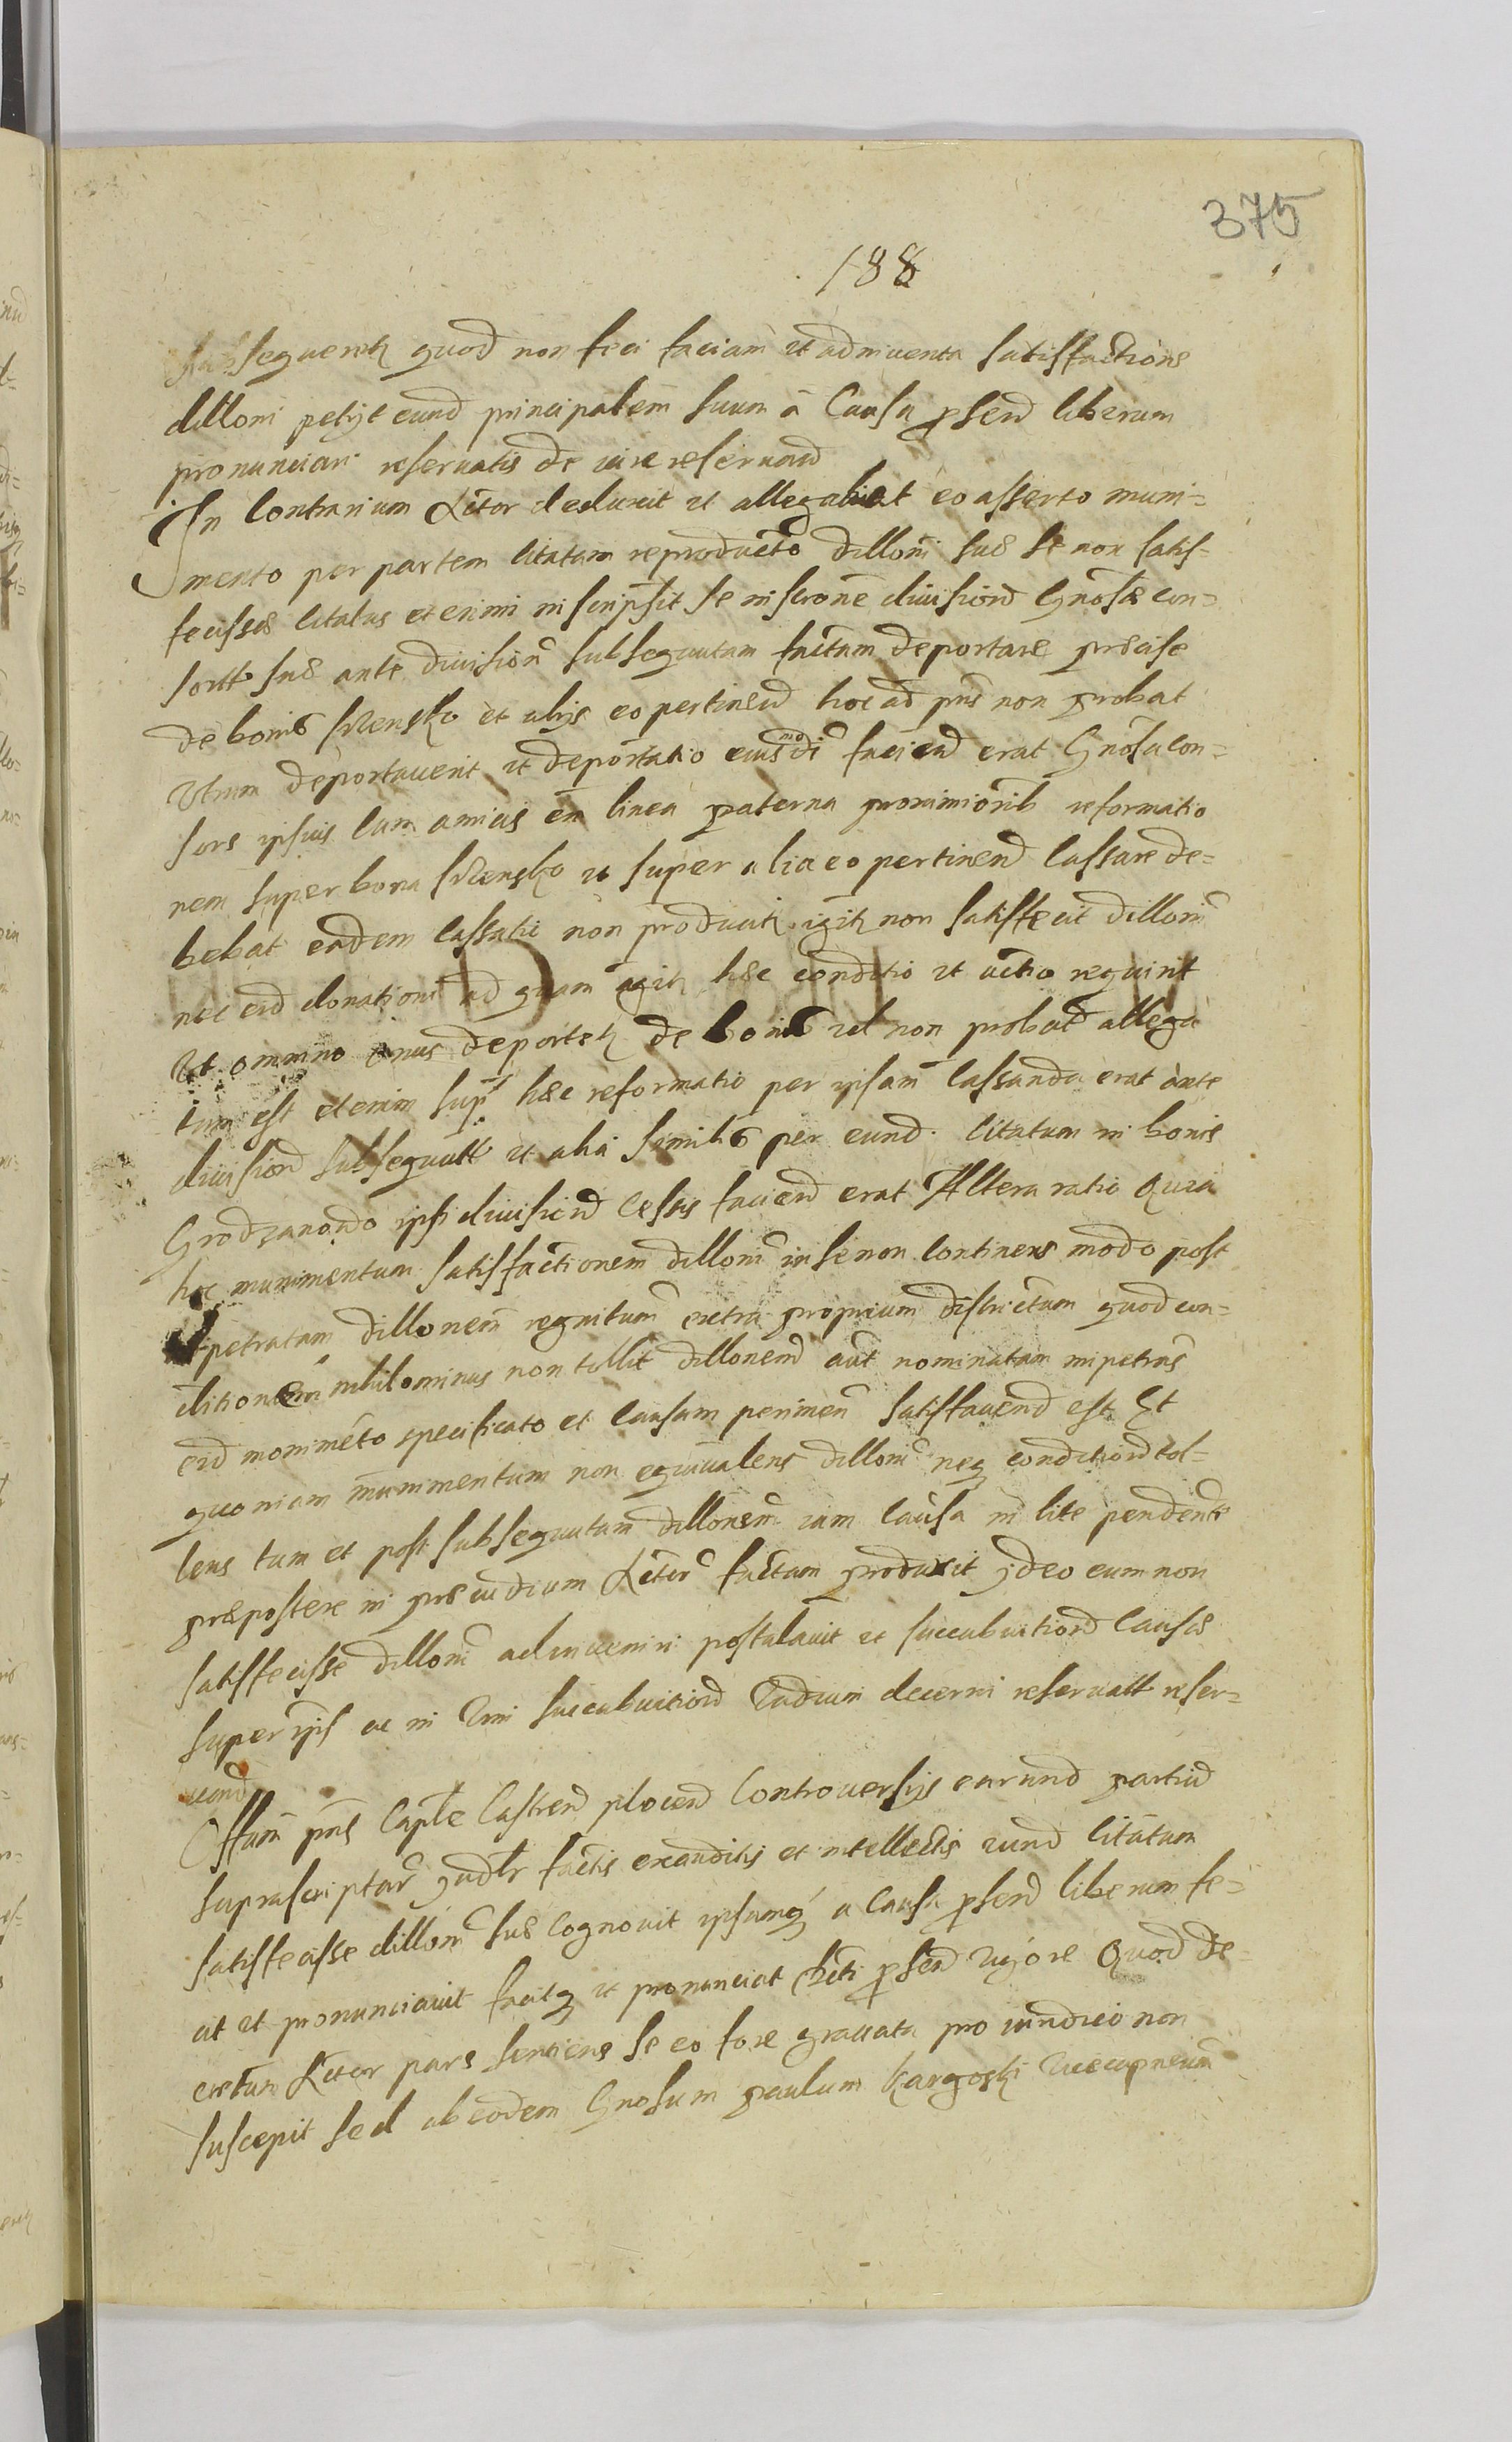 375
188
subsequentr quod non feci faciam et adinventa satisfactione
dilloni petyt eund principalem suum a Causa prsend liberum
pronunciari reservatis de iure reservand
In Contrarium Actor deduxit et allegabat eo asserto muni=
mento per partem citatam reproducto dilloni suæ se non satis=
fecisse citatus etenim inscripsit se
sortt suæ ante division subsequutam factam deportare præcise
de bonis et alys eo pertinend hoc ad pns non probat
Utrum deportaverit et deportatio eiusmodi faciend erat Gnosa con=
sors ipsius cum amicis ex linea paterna proximiorib reformatio
nem super bona et super alia eo pertinend cassare de=
bebat eadem cassatio non producitr igitr non satisfecit dilloni
nec eid donationi ad quam agitr hæc conditio et actio requirit
Ut omnino onus deportetr de bonis vel non probat allega
tum est etenim hæc reformatio per ipsam cassanda erat ante
division subsequutt et alia similis per eund Citatum in bonis
Grodzanowo ipsi division cessis faciend erat Altera ratio Quia
hoc munimentum satisfactionem dilloni in se non continens modo post
petratam dillonem extra proprium districtum quod con=
ditionem nihilominus non tollit dillonem aut nominatam impetrans
eid monimeto specificato et causam perimen satisfaciend est Et
quoniam munimentum non equivalens dilloni neq condition tol=
lens tum et post subsequutam dillonem iam causa in lite pendente
præpostere in præiudicium Actor factum produxit ideo eum non
satisfecisse dilloni adinveniri postulavit et succubuition causæ
super ips ac in vim succubuition vadium decerni reservatt reser=
vand
Offum pns Capitle Castren plocen Controversys earund partiu
suprascriptar judlr factis exauditis et intellectis eund Citatum
satisfecisse dilloni suæ cognovit ipsumq a Causa prsend liberum fe=
cit et pronunciavit facitq et pronunciat prsen vigore Quod de=
cretum Actor pars sentiens se eo fore gravata pro iuridico non
suscepit sed ab eodem Gnosum paulum Kargoski